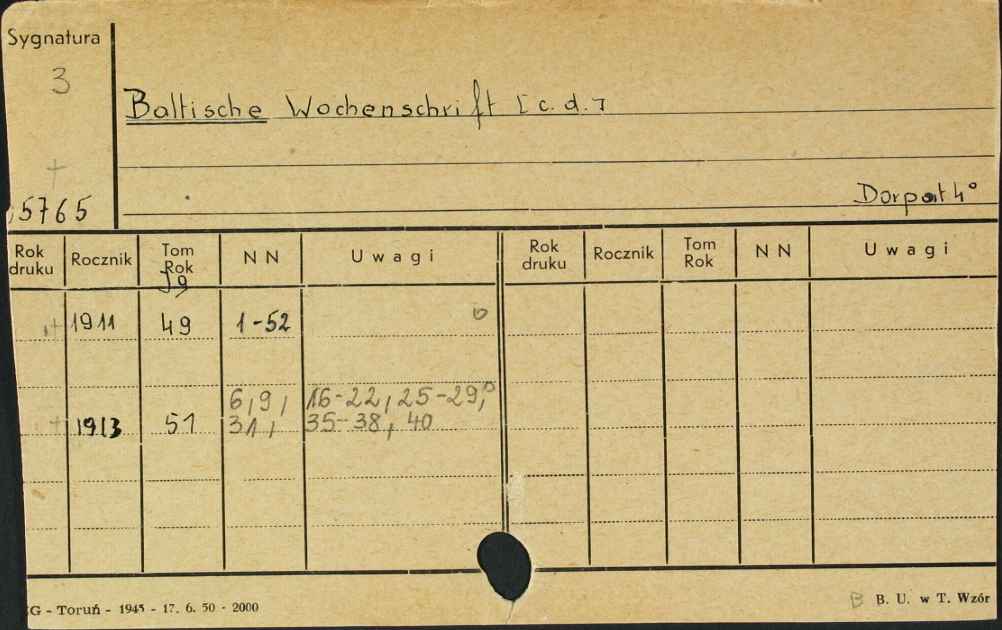 Sygnatura
3
Baltische Wochenschrift [c.d.]
+
5765
Dorpat 4°
Rok druku Rocznik Tom Rok NN Uwagi Rok druku Rocznik Tom Rok NN Uwagi
Jg
+ 1911 49 1-52
6, 9, 16-22, 25-29,
+ 1913 51 31, 35-38, 40
G - Toruń - 1945 - 17. 6. 50 - 2000
B B. U. w T. Wzór